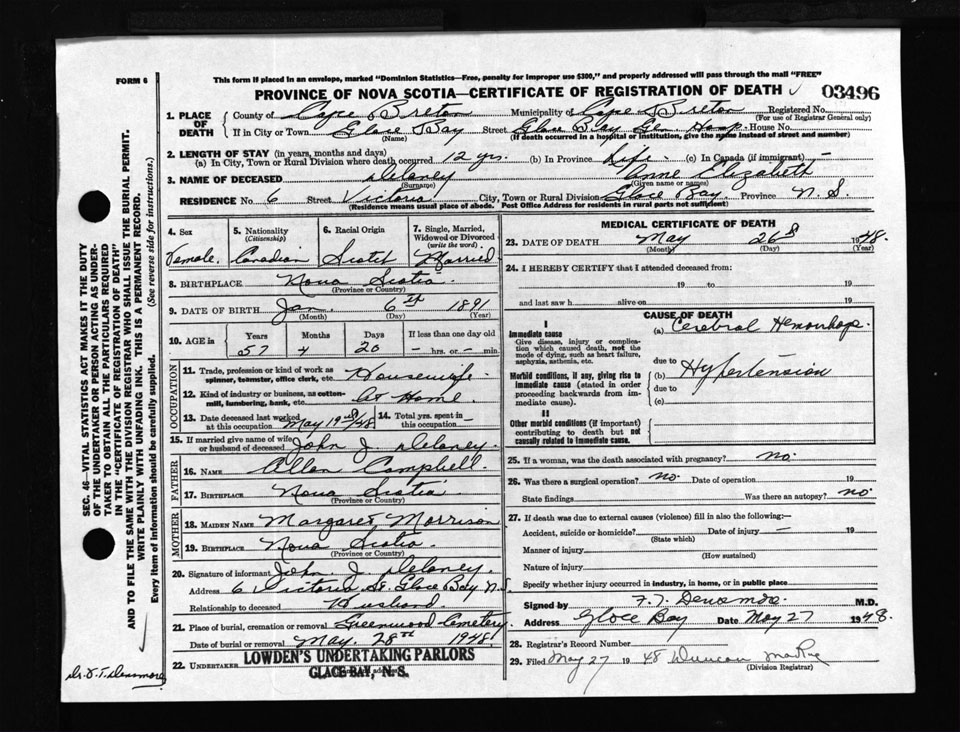 FORM 6
This form if placed in an envelope, marked "Dominion Statistics—Free, penalty for improper use $300," and properly addressed will pass through the mail "FREE"
PROVINCE OF NOVA SCOTIA—CERTIFICATE OF REGISTRATION OF DEATH 03496
1. PLACE OF DEATH County of Cape Breton Municipality of Cape Breton Registered No.
(For use of Registrar General only)
If in City or Town Glace Bay Street Glace Bay Gen. Hosp. House No.
(Name) (If death occurred in a hospital or institution, give the name instead of street and number)
2. LENGTH OF STAY (in years, months and days)
(a) In City, Town or Rural Division where death occurred 12 yrs. (b) In Province Life (c) In Canada (if immigrant) —
3. NAME OF DECEASED Delaney Anne Elizabeth
(Surname) (Given name or names)
RESIDENCE No. 6 Street Victoria City, Town or Rural Division Glace Bay Province N. S.
(Residence means usual place of abode. Post Office Address for residents in rural parts not sufficient)
4. Sex Female.
5. Nationality (Citizenship) Canadian
6. Racial Origin Scotch
7. Single, Married, Widowed or Divorced (write the word.) Married
8. BIRTHPLACE Nova Scotia.
(Province or Country)
9. DATE OF BIRTH Jan. 6th 1891
(Month) (Day) (Year)
10. AGE in Years Months Days If less than one day old
57 4 20 — hrs. or — min.
OCCUPATION
11. Trade, profession or kind of work as spinner, teamster, office clerk, etc. Housewife.
12. Kind of industry or business, as cotton-mill, lumbering, bank, etc. At Home.
13. Date deceased last worked at this occupation May 19/48 14. Total yrs. spent in this occupation —
15. If married give name of wife or husband of deceased John J. Delaney.
FATHER
16. NAME Allan Campbell.
17. BIRTHPLACE Nova Scotia
(Province or Country)
MOTHER
18. MAIDEN NAME Margaret Morrison
19. BIRTHPLACE Nova Scotia.
(Province or Country)
20. Signature of informant John J. Delaney.
Address 6 Victoria St. Glace Bay N.S.
Relationship to deceased Husband.
21. Place of burial, cremation or removal Greenwood Cemetery
Date of burial or removal May. 28th 1948.
22. UNDERTAKER LOWDEN'S UNDERTAKING PARLORS
GLACE BAY, N. S.
MEDICAL CERTIFICATE OF DEATH
23. DATE OF DEATH May 26 1948.
(Month) (Day) (Year)
24. I HEREBY CERTIFY that I attended deceased from:
19 to 19
and last saw h alive on 19
CAUSE OF DEATH
I
Immediate cause
Give disease, injury or complication which caused death, not the mode of dying, such as heart failure, asphyxia, asthenia, etc.
(a) Cerebral Hemorrhage.
due to
Morbid conditions, if any, giving rise to immediate cause (stated in order proceeding backwards from immediate cause).
(b) Hypertension
due to
(c)
II
Other morbid conditions (if important) contributing to death but not causally related to immediate cause.
25. If a woman, was the death associated with pregnancy? no.
26. Was there a surgical operation? no Date of operation 19
State findings Was there an autopsy? no
27. If death was due to external causes (violence) fill in also the following:—
Accident, suicide or homicide? Date of injury — 19
(State which)
Manner of injury
(How sustained)
Nature of injury
Specify whether injury occurred in industry, in home, or in public place
Signed by F. T. Densmore M.D.
Address Glace Bay Date May 27 1948.
28. Registrar's Record Number
29. Filed May 27 1948 Duncan
(Division Registrar)
SEC. 46—VITAL STATISTICS ACT MAKES IT THE DUTY
OF THE UNDERTAKER OR PERSON ACTING AS UNDERTAKER TO OBTAIN ALL THE PARTICULARS REQUIRED
IN THE "CERTIFICATE OF REGISTRATION OF DEATH"
AND TO FILE THE SAME WITH THE DIVISION REGISTRAR WHO SHALL ISSUE THE BURIAL PERMIT.
WRITE PLAINLY WITH UNFADING INK. THIS IS A PERMANENT RECORD.
Every item of information should be carefully supplied. (See reverse side for instructions.)
Dr. F. T. Densmore